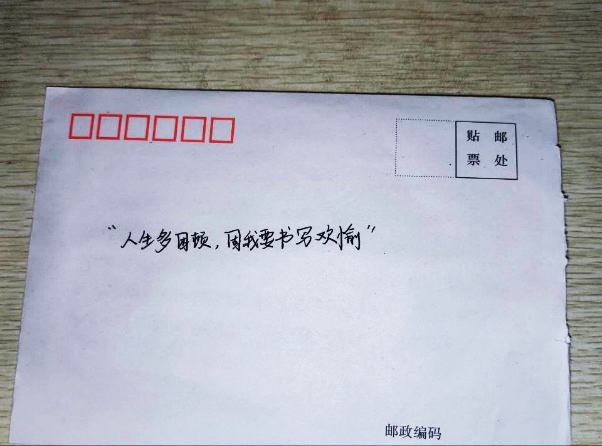 贴 邮
票 处
“人生多困顿，因我要书写欢愉”
邮政编码